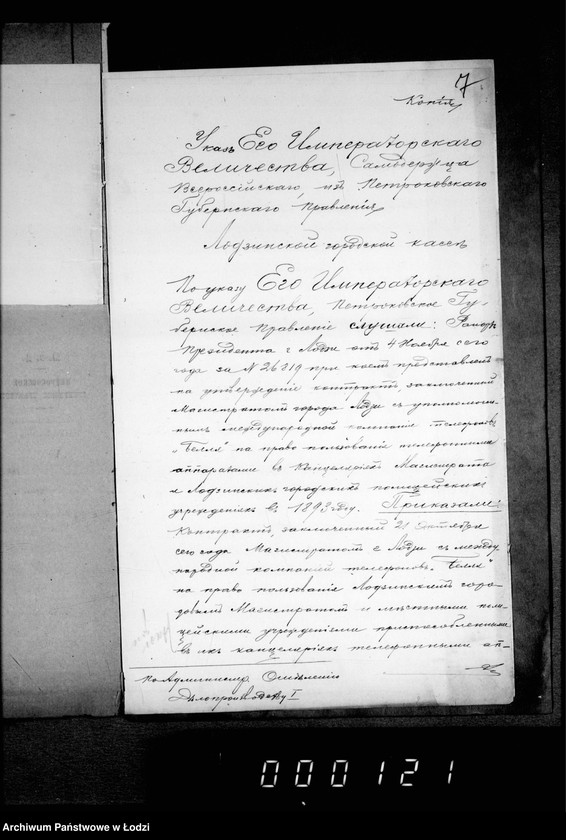 7
Копія
Указъ Его Императорскаго
Величества, Самодержца
Всероссійскаго, изъ Петроковскаго
Губернскаго Правленія
Лодзинской городской кассѣ
По указу Его Императорскаго
Величества, Петроковское Гу-
бернское Правленіе слушали: Рапортъ
Президента г. Лодзи отъ 4 Ноября сего
года за № 26219 при коемъ представленъ
на утвержденіе контрактъ, заключенный
Магистратомъ города Лодзи съ уполномочен-
нымъ международной компаніи телефоновъ
„Белля" на право пользованія телефонными
аппаратами въ Канцеляріяхъ Магистрата
и Лодзинскихъ городскихъ полицейскихъ
учрежденіяхъ въ 1893 году. Приказали:
Контрактъ, заключенный 21 Октября
сего года Магистратомъ г. Лодзи съ между-
народной компаніей телефоновъ „Белля"
на право пользованія Лодзинскимъ горо-
довымъ Магистратомъ и мѣстными поли-
цейскими учрежденіями приспособленными
въ ихъ канцеляріяхъ телефонными ап-
По Администр. Отдѣленію
Дѣлопроизводству I
000121
Archiwum Państwowe w Łodzi